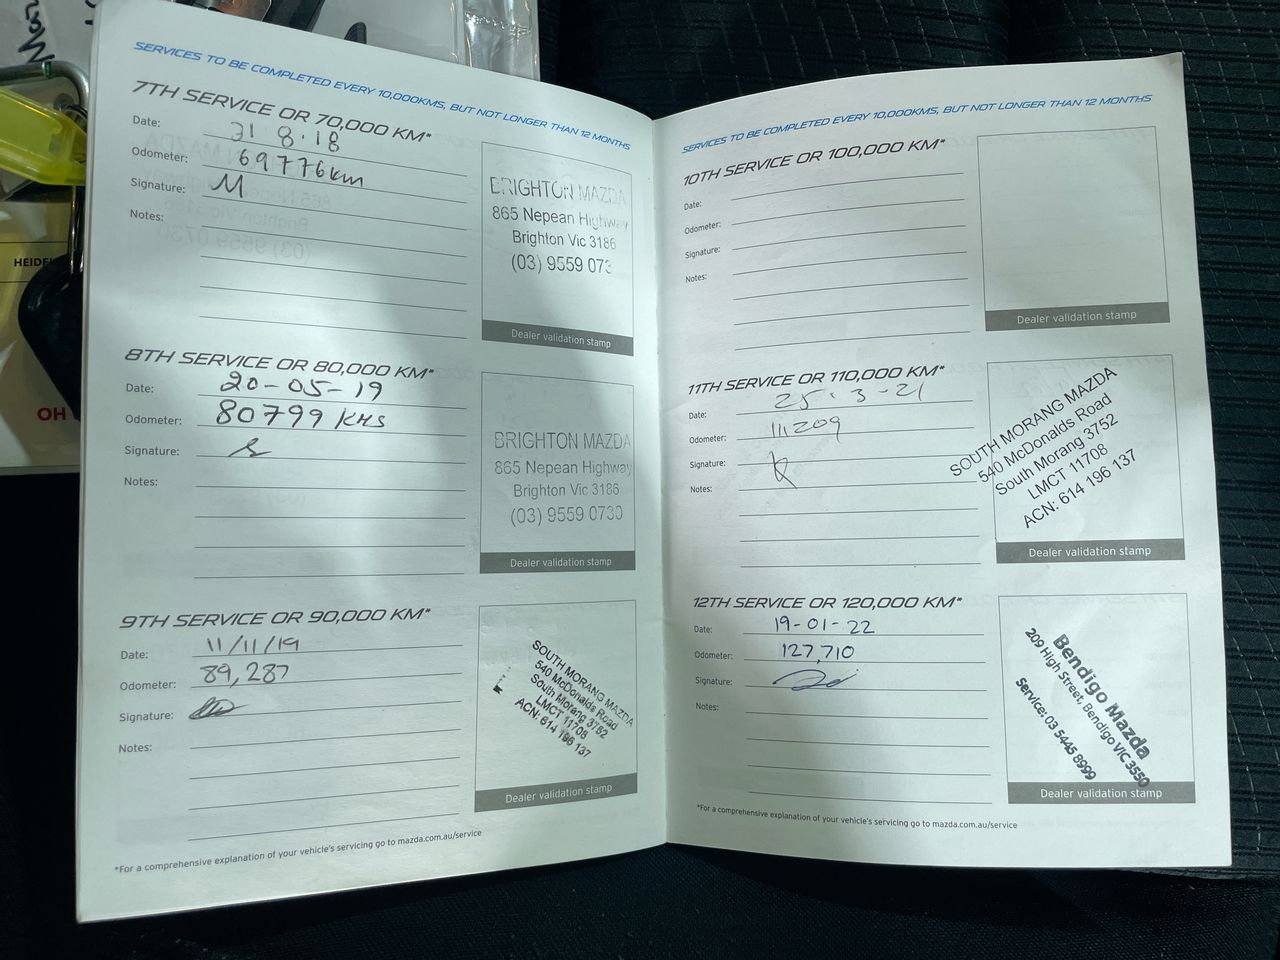 SERVICES TO BE COMPLETED EVERY 10,000KMS, BUT NOT LONGER THAN 12 MONTHS
7TH SERVICE OR 70,000 KM*
Date: 31 8.18
Odometer: 69776km
Signature: M
Notes:
BRIGHTON MAZDA
865 Nepean Highway
Brighton Vic 3186
(03) 9559 073
Dealer validation stamp
8TH SERVICE OR 80,000 KM*
Date: 20-05-19
Odometer: 80799 KMS
Signature:
Notes:
BRIGHTON MAZDA
865 Nepean Highway
Brighton Vic 3186
(03) 9559 0730
Dealer validation stamp
9TH SERVICE OR 90,000 KM*
Date: 11/11/19
Odometer: 89,287
Signature:
Notes:
SOUTH MORANG MAZDA
540 McDonalds Road
South Morang 3752
LMCT 11708
ACN: 614 196 137
Dealer validation stamp
*For a comprehensive explanation of your vehicle's servicing go to mazda.com.au/service
SERVICES TO BE COMPLETED EVERY 10,000KMS, BUT NOT LONGER THAN 12 MONTHS
10TH SERVICE OR 100,000 KM*
Date:
Odometer:
Signature:
Notes:
Dealer validation stamp
11TH SERVICE OR 110,000 KM*
Date: 25.3-21
Odometer: 111209
Signature:
Notes:
SOUTH MORANG MAZDA
540 McDonalds Road
South Morang 3752
LMCT 11708
ACN: 614 196 137
Dealer validation stamp
12TH SERVICE OR 120,000 KM*
Date: 19-01-22
Odometer: 127,710
Signature:
Notes:
Bendigo Mazda
209 High Street, Bendigo VIC 3550
Service: 03 5445 8999
Dealer validation stamp
*For a comprehensive explanation of your vehicle's servicing go to mazda.com.au/service
OH